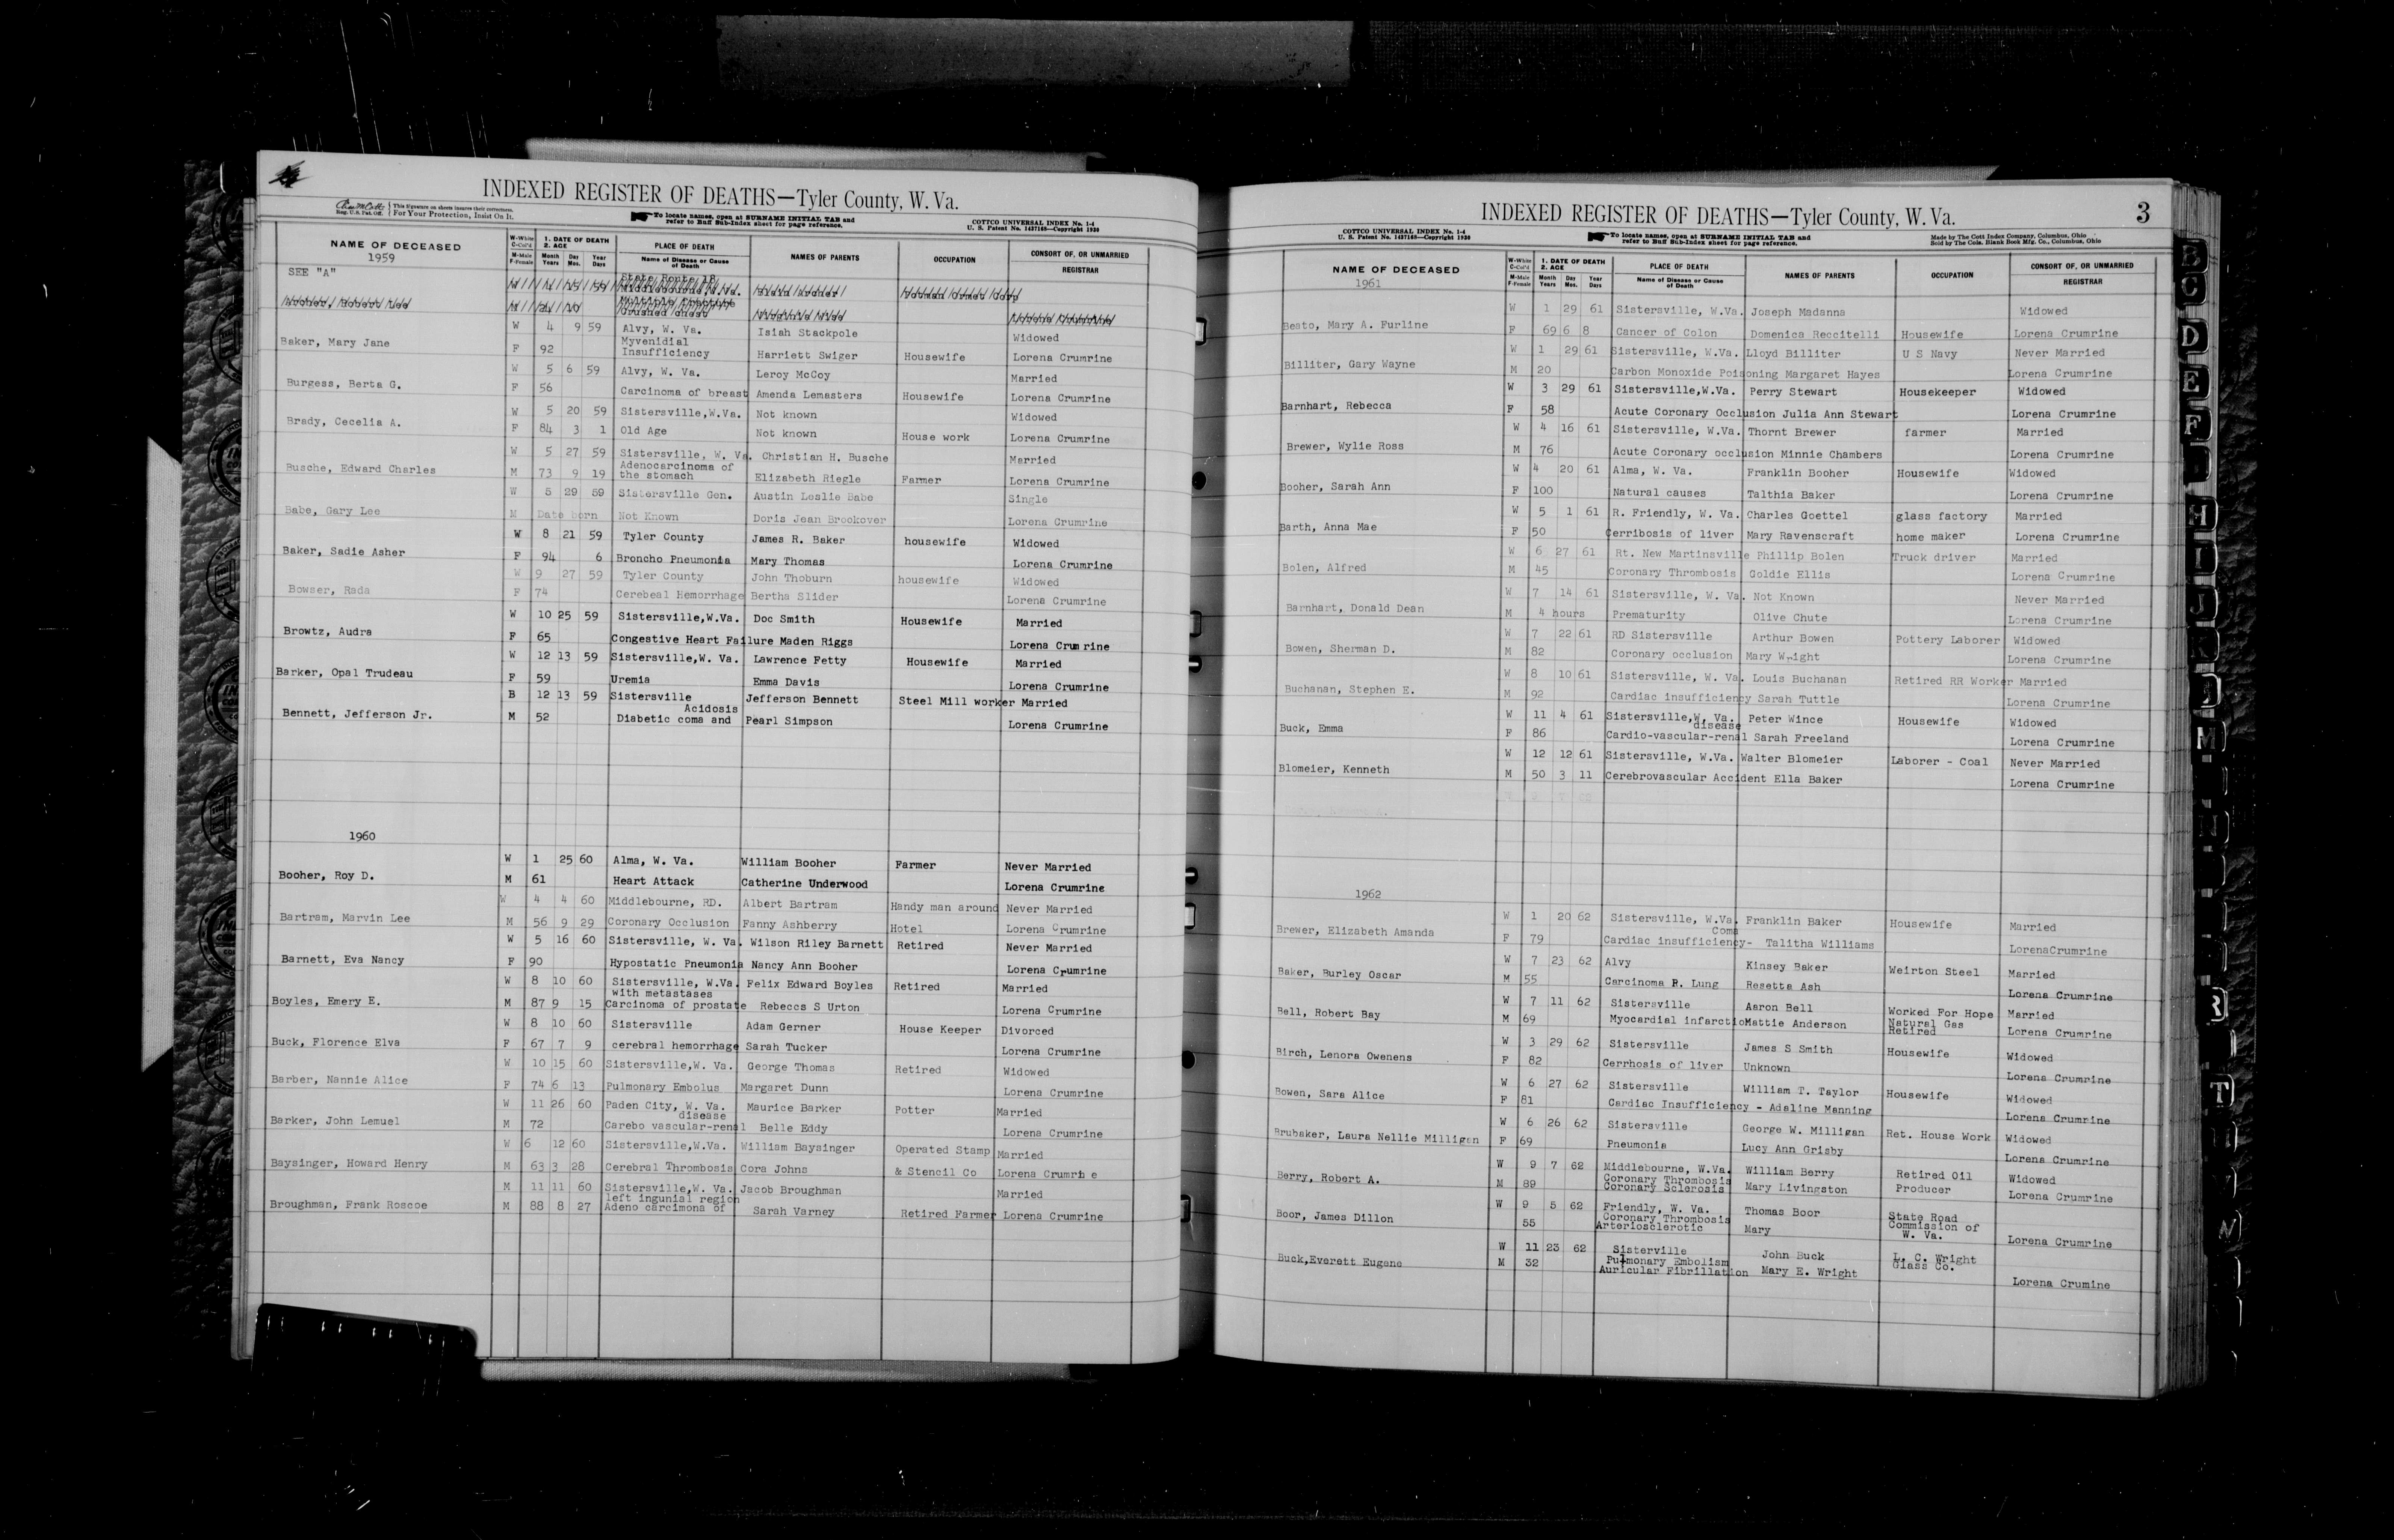 INDEXED REGISTER OF DEATHS—Tyler County, W. Va.
Reg. U. S. Pat. Off. This Signature on sheets insures their correctness. For Your Protection, Insist On It.
To locate names, open at SURNAME INITIAL TAB and refer to Buff Sub-Index sheet for page reference.
COTTCO UNIVERSAL INDEX No. 1-4
U. S. Patent No. 1437168—Copyright 1930
NAME OF DECEASED W-White C-Col'd 1. DATE OF DEATH 2. AGE PLACE OF DEATH NAMES OF PARENTS OCCUPATION CONSORT OF, OR UNMARRIED
1959 M-Male F-Female Month Years Day Mos. Year Days Name of Disease or Cause of Death REGISTRAR
SEE "A"
W 1 15 59 State Route 18, Middlebourne, W. Va. Blain Archer Potman Ormet Corp
Archer, Robert Lee M 21 10 Multiple Crushed chest Virginia Wise Lorena Crumrine
W 4 9 59 Alvy, W. Va. Isiah Stackpole Widowed
Baker, Mary Jane F 92 Myvenidial Insufficiency Harriett Swiger Housewife Lorena Crumrine
W 5 6 59 Alvy, W. Va. Leroy McCoy Married
Burgess, Berta G. F 56 Carcinoma of breast Amenda Lemasters Housewife Lorena Crumrine
W 5 20 59 Sistersville,W.Va. Not known Widowed
Brady, Cecelia A. F 84 3 1 Old Age Not known House work Lorena Crumrine
W 5 27 59 Sistersville, W. Va. Christian H. Busche Married
Busche, Edward Charles M 73 9 19 Adenocarcinoma of the stomach Elizabeth Riegle Farmer Lorena Crumrine
W 5 29 59 Sistersville Gen. Austin Leslie Babe Single
Babe, Gary Lee M Date born Not Known Doris Jean Brookover Lorena Crumrine
W 8 21 59 Tyler County James R. Baker housewife Widowed
Baker, Sadie Asher F 94 6 Broncho Pneumonia Mary Thomas Lorena Crumrine
W 9 27 59 Tyler County John Thoburn housewife Widowed
Bowser, Rada F 74 Cerebeal Hemorrhage Bertha Slider Lorena Crumrine
W 10 25 59 Sistersville,W.Va. Doc Smith Housewife Married
Browtz, Audra F 65 Congestive Heart Failure Maden Riggs Lorena Crumrine
W 12 13 59 Sistersville,W. Va. Lawrence Fetty Housewife Married
Barker, Opal Trudeau F 59 Uremia Emma Davis Lorena Crumrine
B 12 13 59 Sistersville Jefferson Bennett Steel Mill worker Married
Acidosis
Bennett, Jefferson Jr. M 52 Diabetic coma and Pearl Simpson Lorena Crumrine
1960
W 1 25 60 Alma, W. Va. William Booher Farmer Never Married
Booher, Roy D. M 61 Heart Attack Catherine Underwood Lorena Crumrine
W 4 4 60 Middlebourne, RD. Albert Bartram Handy man around Never Married
Bartram, Marvin Lee M 56 9 29 Coronary Occlusion Fanny Ashberry Hotel Lorena Crumrine
W 5 16 60 Sistersville, W. Va. Wilson Riley Barnett Retired Never Married
Barnett, Eva Nancy F 90 Hypostatic Pneumonia Nancy Ann Booher Lorena Crumrine
W 8 10 60 Sistersville, W.Va. Felix Edward Boyles Retired Married
with metastases
Boyles, Emery E. M 87 9 15 Carcinoma of prostate Rebeccs S Urton Lorena Crumrine
W 8 10 60 Sistersville Adam Gerner House Keeper Divorced
Buck, Florence Elva F 67 7 9 cerebral hemorrhage Sarah Tucker Lorena Crumrine
W 10 15 60 Sistersville,W. Va. George Thomas Retired Widowed
Barber, Nannie Alice F 74 6 13 Pulmonary Embolus Margaret Dunn Lorena Crumrine
W 11 26 60 Paden City, W. Va. Maurice Barker Potter Married
disease
Barker, John Lemuel M 72 Carebo vascular-renal Belle Eddy Lorena Crumrine
W 6 12 60 Sistersville,W.Va. William Baysinger Operated Stamp Married
Baysinger, Howard Henry M 63 3 28 Cerebral Thrombosis Cora Johns & Stencil Co Lorena Crumrine
M 11 11 60 Sistersville,W. Va. Jacob Broughman Married
left ingunial region
Broughman, Frank Roscoe M 88 8 27 Adeno carcimona of Sarah Varney Retired Farmer Lorena Crumrine
INDEXED REGISTER OF DEATHS—Tyler County, W. Va. 3
COTTCO UNIVERSAL INDEX No. 1-4
U. S. Patent No. 1437168—Copyright 1930
To locate names, open at SURNAME INITIAL TAB and refer to Buff Sub-Index sheet for page reference.
Made by The Cott Index Company, Columbus, Ohio
Sold by The Cols. Blank Book Mfg. Co., Columbus, Ohio
NAME OF DECEASED W-White C-Col'd 1. DATE OF DEATH 2. AGE PLACE OF DEATH NAMES OF PARENTS OCCUPATION CONSORT OF, OR UNMARRIED
1961 M-Male F-Female Month Years Day Mos. Year Days Name of Disease or Cause of Death REGISTRAR
W 1 29 61 Sistersville, W.Va. Joseph Madanna Widowed
Beato, Mary A. Furline F 69 6 8 Cancer of Colon Domenica Reccitelli Housewife Lorena Crumrine
W 1 29 61 Sistersville, W.Va. Lloyd Billiter U S Navy Never Married
Billiter, Gary Wayne M 20 Carbon Monoxide Poisoning Margaret Hayes Lorena Crumrine
W 3 29 61 Sistersville,W.Va. Perry Stewart Housekeeper Widowed
Barnhart, Rebecca F 58 Acute Coronary Occlusion Julia Ann Stewart Lorena Crumrine
W 4 16 61 Sistersville, W.Va. Thornt Brewer farmer Married
Brewer, Wylie Ross M 76 Acute Coronary occlusion Minnie Chambers Lorena Crumrine
W 4 20 61 Alma, W. Va. Franklin Booher Housewife Widowed
Booher, Sarah Ann F 100 Natural causes Talthia Baker Lorena Crumrine
W 5 1 61 R. Friendly, W. Va. Charles Goettel glass factory Married
Barth, Anna Mae F 50 Cerribosis of liver Mary Ravenscraft home maker Lorena Crumrine
W 6 27 61 Rt. New Martinsville Phillip Bolen Truck driver Married
Bolen, Alfred M 45 Coronary Thrombosis Goldie Ellis Lorena Crumrine
W 7 14 61 Sistersville, W. Va. Not Known Never Married
Barnhart, Donald Dean M 4 hours Prematurity Olive Chute Lorena Crumrine
W 7 22 61 RD Sistersville Arthur Bowen Pottery Laborer Widowed
Bowen, Sherman D. M 82 Coronary occlusion Mary Wright Lorena Crumrine
W 8 10 61 Sistersville, W. Va. Louis Buchanan Retired RR Worker Married
Buchanan, Stephen E. M 92 Cardiac insufficiency Sarah Tuttle Lorena Crumrine
W 11 4 61 Sistersville,W. Va. Peter Wince Housewife Widowed
disease
Buck, Emma F 86 Cardio-vascular-renal Sarah Freeland Lorena Crumrine
W 12 12 61 Sistersville, W.Va. Walter Blomeier Laborer - Coal Never Married
Blomeier, Kenneth M 50 3 11 Cerebrovascular Accident Ella Baker Lorena Crumrine
1962
W 1 20 62 Sistersville, W.Va. Franklin Baker Housewife Married
Coma
Brewer, Elizabeth Amanda F 79 Cardiac insufficiency- Talitha Williams LorenaCrumrine
W 7 23 62 Alvy Kinsey Baker Weirton Steel Married
Baker, Burley Oscar M 55 Carcinoma R. Lung Resetta Ash Lorena Crumrine
W 7 11 62 Sistersville Aaron Bell Worked For Hope Married
Bell, Robert Bay M 69 Myocardial infarctio Mattie Anderson Natural Gas Retired Lorena Crumrine
W 3 29 62 Sistersville James S Smith Housewife Widowed
Birch, Lenora Owenens F 82 Cerrhosis of liver Unknown Lorena Crumrine
W 6 27 62 Sistersville William T. Taylor Housewife Widowed
Bowen, Sara Alice F 81 Cardiac Insufficiency - Adaline Manning Lorena Crumrine
W 6 26 62 Sistersville George W. Milligan Ret. House Work Widowed
Brubaker, Laura Nellie Milligan F 69 Pneumonia Lucy Ann Grisby Lorena Crumrine
W 9 7 62 Middlebourne, W.Va. William Berry Retired Oil Widowed
Berry, Robert A. M 89 Coronary Thrombosis Coronary Sclerosis Mary Livingston Producer Lorena Crumrine
W 9 5 62 Friendly, W. Va. Thomas Boor State Road
Boor, James Dillon 55 Coronary Thrombosis Arteriosclerotic Mary Commission of W. Va. Lorena Crumrine
W 11 23 62 Sisterville John Buck L. C. Wright
Buck,Everett Eugene M 32 Pulmonary Embolism Auricular Fibrillation Mary E. Wright Glass Co. Lorena Crumine
B
C
D
E
F
H
I
J
K
M
R
T